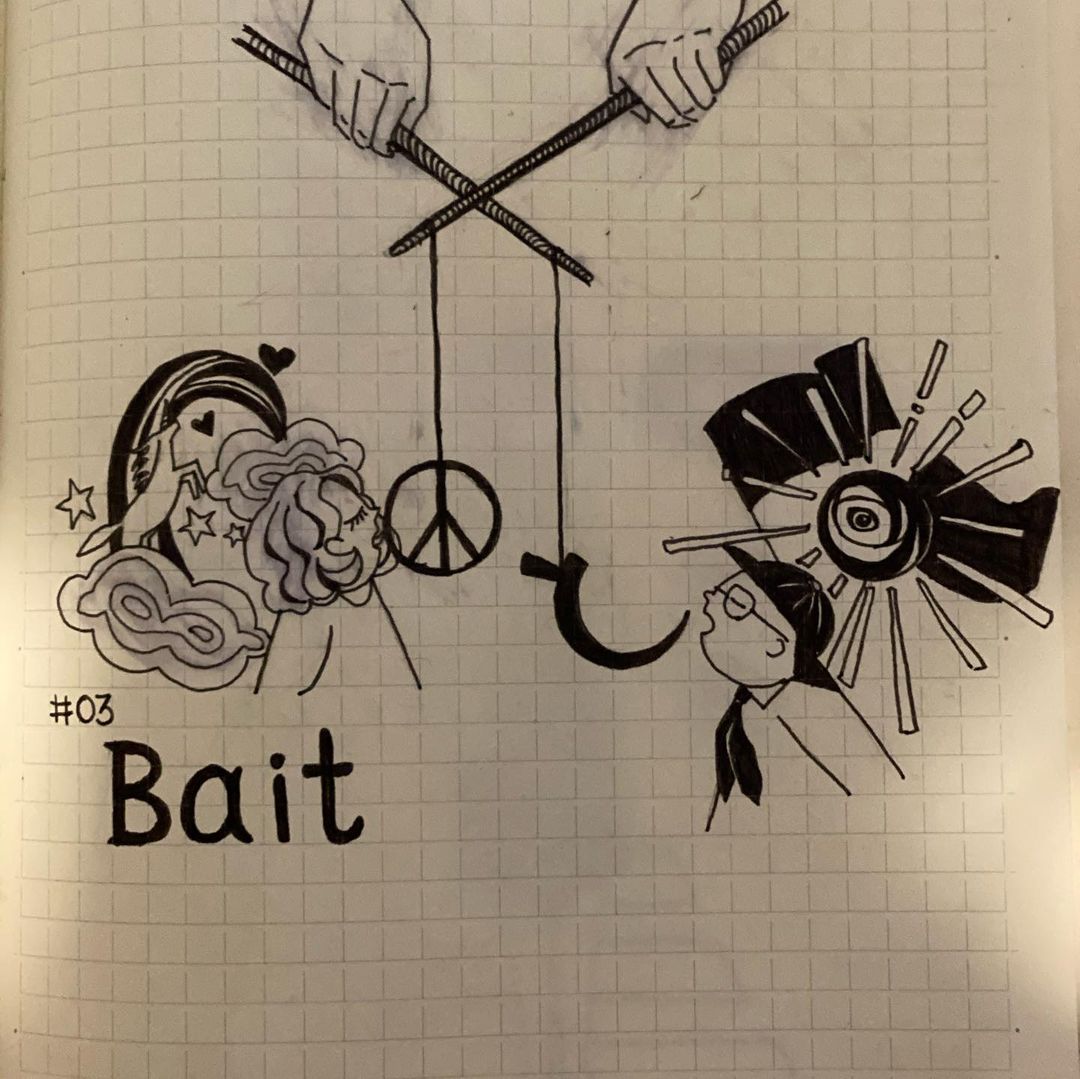 #03
Bait